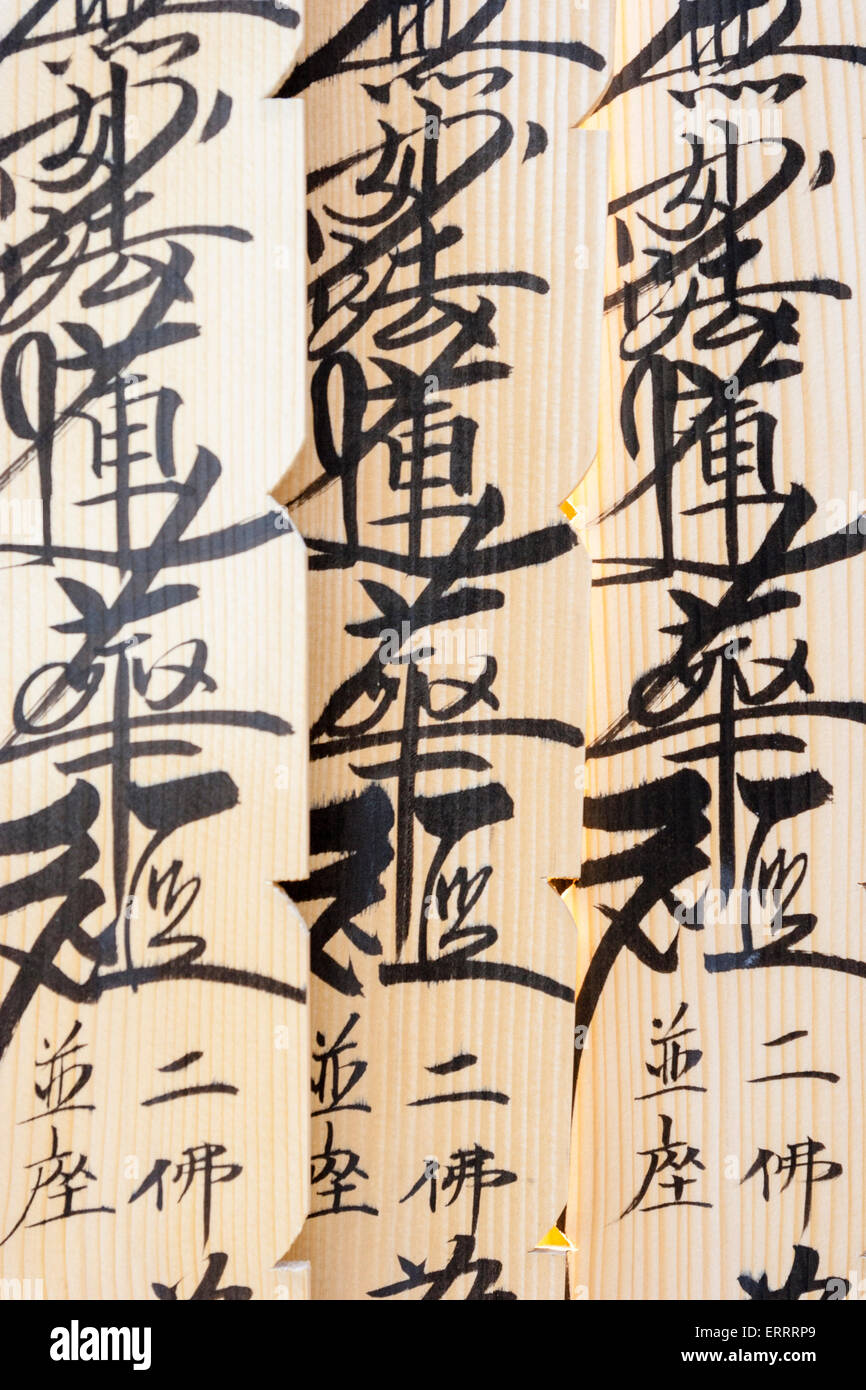 無妙法蓮華経
二佛
並座
無妙法蓮華経
二佛
並座
無妙法蓮華経
二佛
並座
alamy
Image ID: ERRRP9
www.alamy.com